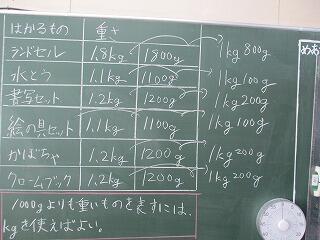 はかるもの 重さ
ランドセル 1.8kg 1800g 1kg 800g
水とう 1.1kg 1100g 1kg 100g
書写セット 1.2kg 1200g 1kg 200g
絵の具セット 1.1kg 1100g 1kg 100g
かぼちゃ 1.2kg 1200g 1kg 200g
クロームブック 1.2kg 1200g 1kg 200g
1000gよりも重いものを表すには、
kgを使えばよい。
めあ